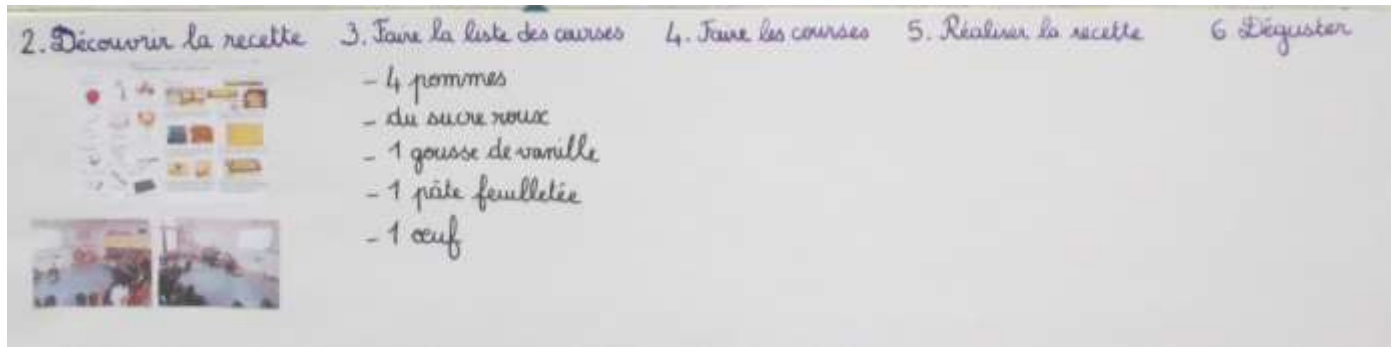 2. Découvrir la recette
3. Faire la liste des courses
- 4 pommes
- du sucre roux
- 1 gousse de vanille
- 1 pâte feuilletée
- 1 œuf
4. Faire les courses
5. Réaliser la recette
6 Déguster